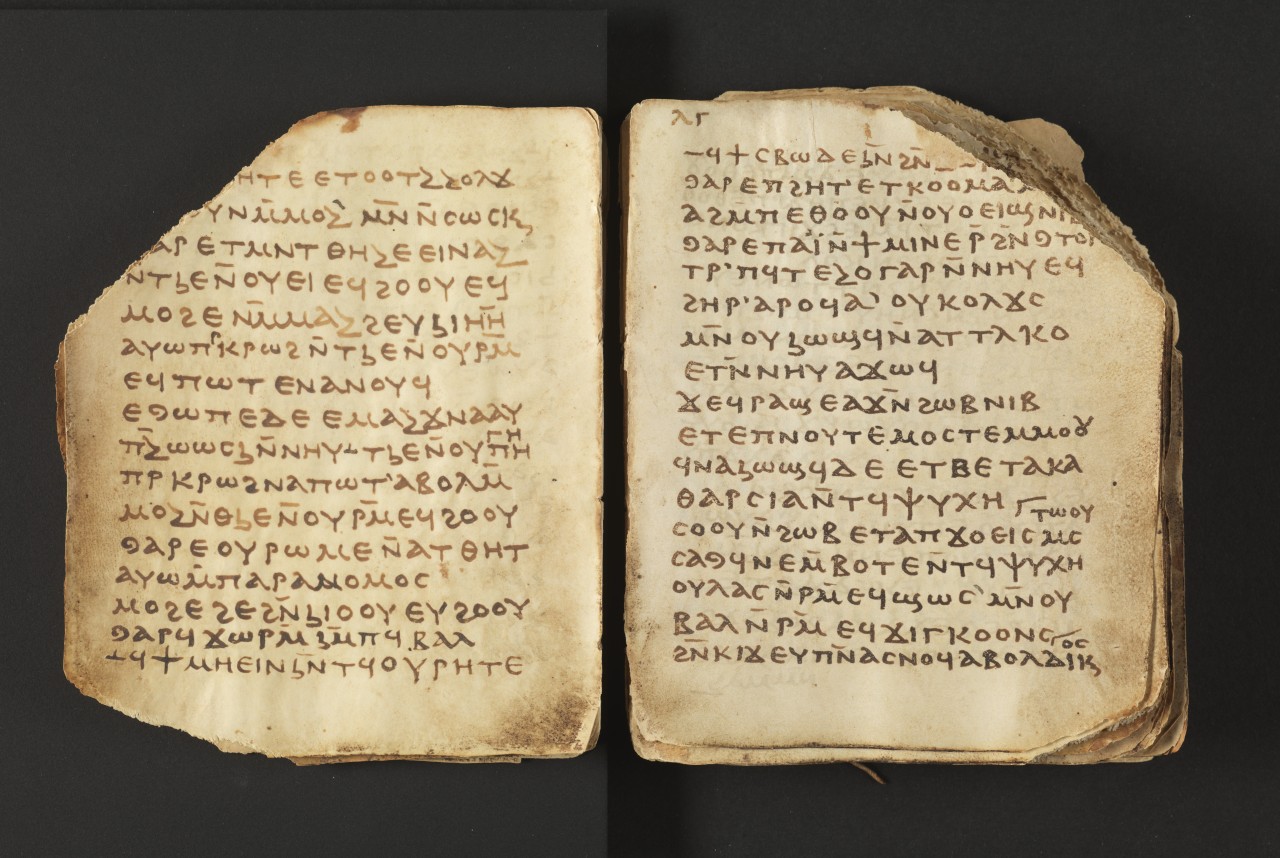 ϩⲏⲧⲉ ⲉⲧⲟⲟⲧⲕ ⲕⲟⲗϫ
ⲩⲛ ⲙ̄ⲙⲟⲕ ⲙ̄ⲛ̄ⲛ̄ⲥⲱⲥ ⲕⳉ
ϣⲁⲣⲉⲧⲙⲛⲧϩⲏⲕⲉ ⲉⲓ ⲛⲁⲕ
ⲛⲧⳉⲉ ⲛ̄ⲟⲩⲉⲓ ⲉϥϩⲟⲟⲩ ⲉϥ
ⲙⲟϩⲉ ⲛⲙ̄ⲙⲁⲕ ϩⲉⲩⳉⲓⲏ
ⲁⲩⲱ ⲡⲣ̄ⲕⲣⲱϩ ⲛ̄ⲧⳉⲉ ⲛ̄ⲟⲩⲣⲙ̄
ⲉϥⲡⲱⲧ ⲉⲛⲁⲛⲟⲩϥ
ⲉϣⲱⲡⲉ ⲇⲉ ⲉⲙⲁⲕϫⲛⲁⲁⲩ
ⲡⲕⲱⲱⲥⳉ ⲛ̄ⲛⲏⲩ ⲛ̄ⲧⳉⲉ ⲛ̄ⲟⲩⲡⲏⲅⲏ
ⲡⲣ̄ⲕⲣⲱϩ ⲛⲁⲡⲱⲧ ⲁⲃⲟⲗ ⲙ̄
ⲙⲟⲕ ⲛ̄ⲑⳉⲉ ⲛ̄ⲟⲩⲣⲙ̄ ⲉϥϩⲟⲟⲩ
ϣⲁⲣⲉⲟⲩⲣⲱⲙⲉ ⲛ̄ⲁⲧϩⲏⲧ
ⲁⲩⲱ ⲙ̄ⲡⲁⲣⲁⲛⲟⲙⲟⲥ
ⲙⲟϩⲉ ϩⲉϩⲛ̄ⳉⲓⲟⲟⲩⲉ ⲩϩⲟⲟⲩ
ϣⲁⲣϥϫⲱⲣⲙ̄ ⳉⲙ̄ⲡϥⲃⲁⲗ
ϥϯⲙⲏⲉⲓⲛ ⳉⲛ̄ⲧϥⲟⲩⲣⲏⲧⲉ
ⲗⲅ
ϥϯⲥⲃⲱ ⲇⲉ ⳉⲛ̄ϩⲛ̄
ϣⲁⲣⲉⲡϩⲏⲧ ⲉⲧⲕⲟⲟⲙⲁ
ⲁϩ ⲙ̄ⲡⲉⲑⲟⲟⲩ ⲛ̄ⲟⲩⲟⲉⲓϣ ⲛⲓⲃ
ϣⲁⲣⲉⲡⲁⲓ̈ ⲛ̄ϯⲙⲓⲛⲉ ⲣ̄ϩⲛ̄ϣⲧⲟⲣ
ⲧⲣ̄ ⲡϥⲧⲉⲕⲟ ⲅⲁⲣ ⲛ̄ⲛⲏⲩ ⲉϥ
ϩⲏⲣ ⲁⲣⲟϥ ⲁⲟⲩⲕⲟⲗϫⲥ
ⲙⲛ̄ ⲟⲩⳉⲱϣϥ ⲛ̄ⲁⲧⲧⲁⲕⲟ
ⲉⲧⲛ̄ⲛⲏⲩ ⲁϫⲱϥ
ϫⲉ ϥⲣⲁϣⲉ ⲁϫⲛ̄ϩⲱⲃ ⲛⲓⲃ
ⲉⲧⲉⲡⲛⲟⲩⲧⲉ ⲙⲟⲥⲧⲉ ⲙⲙⲟⲩ
ϥⲛⲁⳉⲱϣϥ ⲇⲉ ⲉⲧⲃⲉ ⲧⲁⲕⲁ
ⲑⲁⲣⲥⲓⲁ ⲛ̄ⲧϥⲯⲩⲭⲏ
ⲥⲟⲟⲩ ⲛ̄ϩⲱⲃ ⲉⲧⲁⲡϫⲟⲉⲓⲥ ⲙⲥⲧⲱⲟⲩ
ⲥⲁϣϥ ⲛⲉ ⲙ̄ⲃⲟⲧⲉ ⲛ̄ⲧϥⲯⲩⲭⲏ
ⲟⲩⲗⲁⲥ ⲛ̄ⲣⲙ̄ ⲉϥϣⲱⲥ ⲙⲛ̄ ⲟⲩ
ⲃⲁⲗ ⲛ̄ⲣⲙ̄ ⲉϥϫⲓⲅⲕⲟⲟⲛⲥ
ϩⲛ̄ⲕⲓϫ ⲉⲩⲡⲛ̄ ⲁⲥⲛⲟϥ ⲁⲃⲟⲗ ⲇⲓⲕⳉⲟⲥ